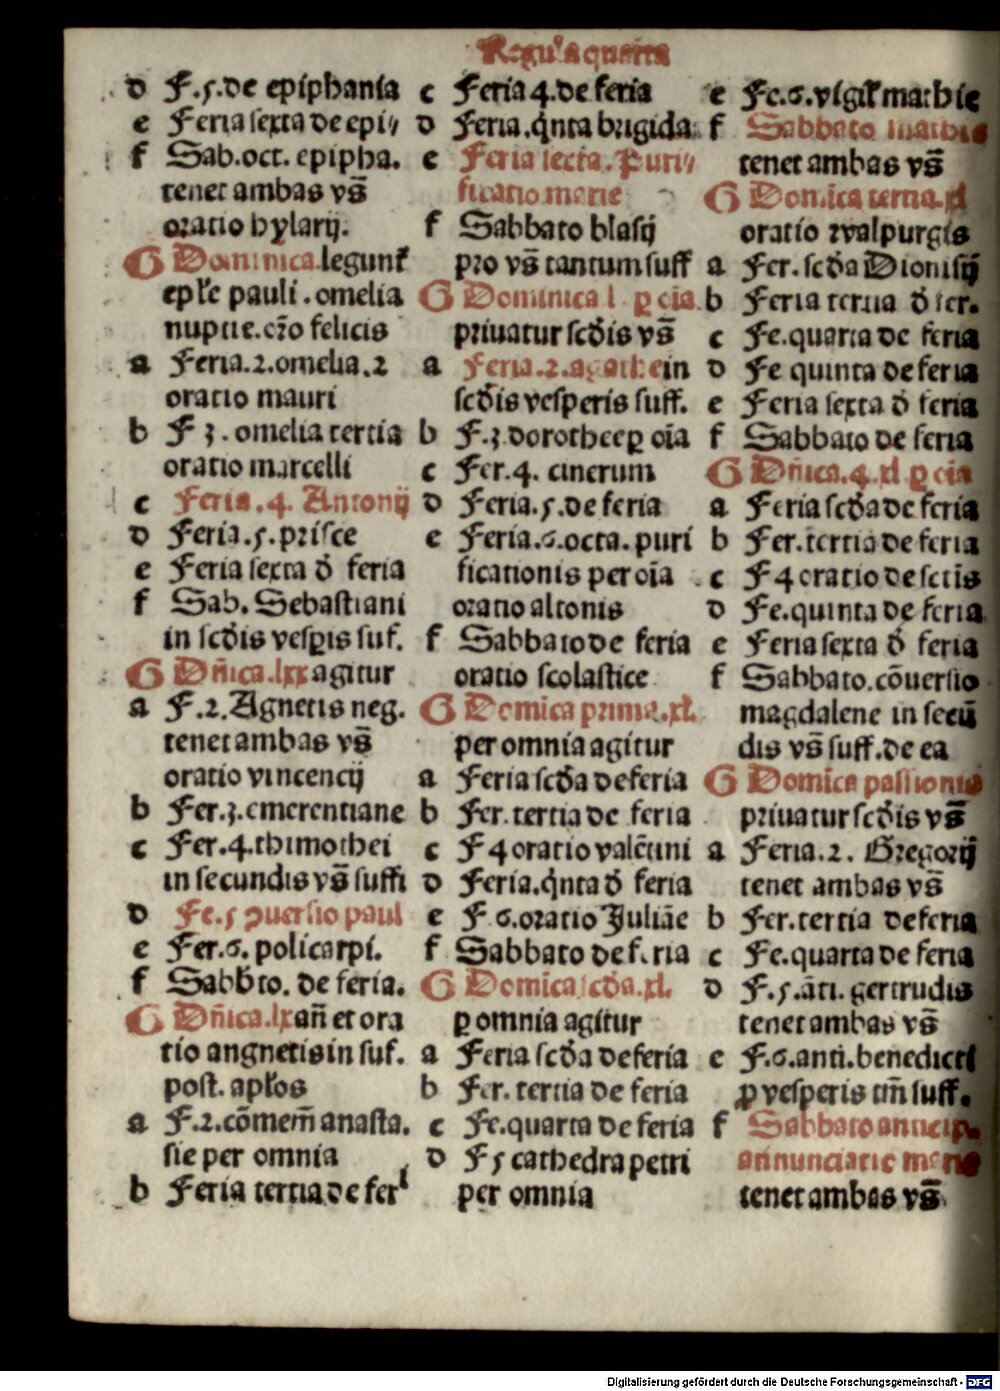 Regula quarta
d F.5.de epiphania
e Feria sexta de epi⸗
f Sab.oct. epipha.
tenet ambas vs̄
oratio hylarij.
G Dominica.legunt̄
ep̄le pauli. omelia
nuptie.c̄ro felicis
a Feria.2.omelia.2
oratio mauri
b F 3. omelia tertia
oratio marcelli
c Feria.4. Antonij
d Feria.5.prisce
e Feria sexta d̄ feria
f Sab. Sebastiani
in sc̄dis vesꝑis suf.
G Dn̄ica.lxx agitur
a F.2.Agnetis neg.
tenet ambas vs̄
oratio vincencij
b Fer.3.emerentiane
c Fer.4.thimothei
in secundis vs̄ suffi
d Fe.5 ꝯuersio paul
e Fer.6. policarpi.
f Sabb̄to. de feria.
G Dn̄ica.lx an̄ et ora
tio angnetis in suf.
post. ap̄los
a F.2.cōmem̄ anasta.
sie per omnia
b Feria tertia de fer
c Feria 4.de feria
d Feria.q̄nta brigida
e Feria sexta. Puri⸗
ficatio marie
f Sabbato blasij
pro vs̄ tantum suff
G Dominica l ꝑ oīa
priuatur sc̄dis vs̄
a Feria.2.agathe in
sc̄dis vesperis suff.
b F.3.dorothee ꝑ oīa
c Fer.4. cinerum
d Feria.5.de feria
e Feria.6.octa. puri
ficationis per oīa
oratio altonis
f Sabbato de feria
oratio scolastice
G Domica prima.xl.
per omnia agitur
a Feria sc̄da de feria
b Fer. tertia de feria
c F 4 oratio valētini
d Feria.q̄nta d̄ feria
e F.6.oratio Juliāe
f Sabbato de feria
G Domica sc̄da.xl.
ꝑ omnia agitur
a Feria sc̄da de feria
b Fer. tertia de feria
c Fe.quarta de feria
d F 5 cathedra petri
per omnia
e Fe.6.vigil̄ mathie
f Sabbato mathie
tenet ambas vs̄
G Domica terna.xl
oratio walpurgis
a Fer. sc̄da Dionisij
b Feria tertia d̄ fer.
c Fe.quarta de feria
d Fe quinta de feria
e Feria sexta d̄ feria
f Sabbato de feria
G Dn̄ica.4.xl ꝑ oīa
a Feria sc̄da de feria
b Fer.tertia de feria
c F 4 oratio de sctīs
d Fe.quinta de feria
e Feria sexta d̄ feria
f Sabbato.cōuersio
magdalene in secū
dis vs̄ suff.de ea
G Domica passionis
priuatur sc̄dis vs̄
a Feria.2. Gregorij
tenet ambas vs̄
b Fer.tertia de feria
c Fe.quarta de feria
d F.5.āti. gertrudis
tenet ambas vs̄
e F.6.anti.benedicti
ꝓ vesperis tm̄ suff.
f Sabbato anticip.
annunciatio marie
tenet ambas vs̄
Digitalisierung gefördert durch die Deutsche Forschungsgemeinschaft - DFG